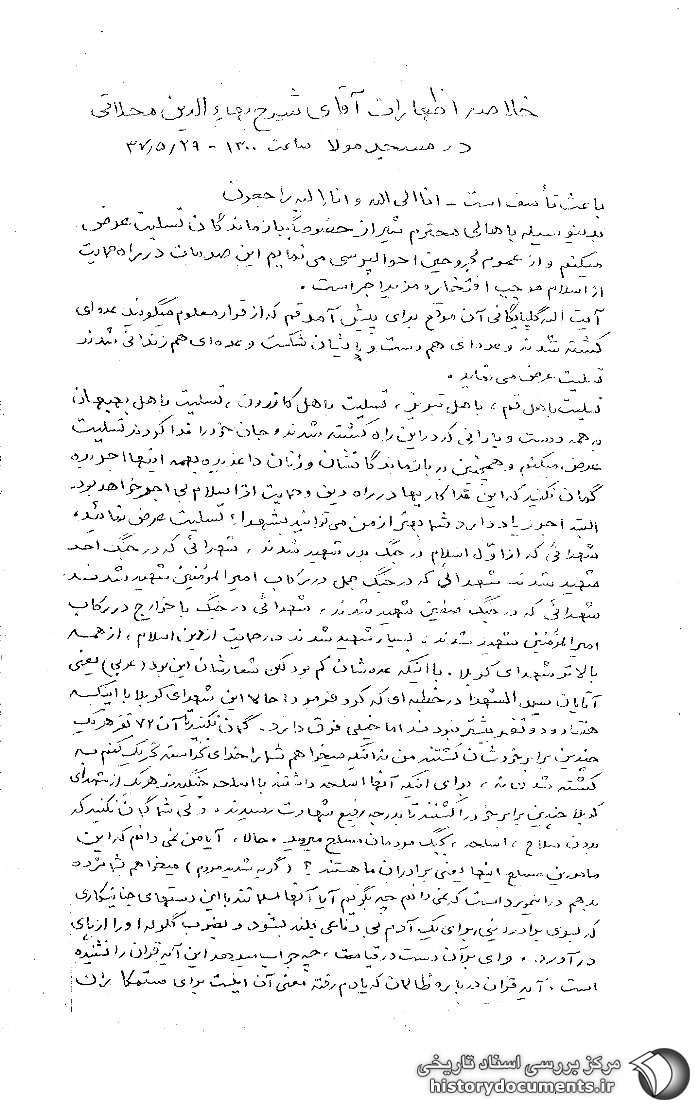 خلاصه اظهارات آقای شیخ بهاءالدین محلاتی
در مسجد مولا ساعت ۱۲۰۰ - ۳۷/۵/۲۹
باعث تأسف است - انا الی اله و انا الیه راجعون
بدینوسیله باهالی محترم شیراز خصوصاً، بازماندگان تسلیت عرض
میکنم و از عموم مجروحین احوالپرسی می نمایم این صدمات در راه حمایت
از اسلام موجب افتخار و مزید اجر است .
آیت اله گلپایگانی آن موقع برای پیش آمد قم که از قرار معلوم میگویند عده‌ای
کشته شدند و عده‌ای هم دست و پایشان شکست و عده‌ای هم زندانی شدند
تسلیت عرض می نماید .
تسلیت باهل قم ، باهل تبریز ، تسلیت باهل کازرون ، تسلیت باهل جهرم
به همه دوست و یارانی که در این راه کشته شدند و جان خود را فدا کردند تسلیت
عرض میکنم و همچنین در بازماندگانشان و زنان داغدیده بهمه اینها
گمان نکنید که این فداکاریها در راه دین و حمایت از اسلام بی اجر خواهد بود
البته اجر زیاد دارد شما بهتر از من می توانید بشهداء تسلیت عرض نمائید ،
شهدائی که از اوّل اسلام در جنگ بدر شهید شدند ، شهدائی که در جنگ احد
شهید شدند شهدائی که در جنگ جمل در رکاب امیرالمؤمنین شهید شدند
شهدائی که در جنگ صفین شهید شدند ، شهدائی در جنگ با خوارج در رکاب
امیرالمؤمنین شهید شدند ، بسیار شهید شدند در حمایت از دین اسلام ، از همه
بالاتر شهدای کربلا . با اینکه عده‌شان کم بود لکن شعارشان این بود (عربی) یعنی
آقایان سید الشهدا در خطبه‌ای که کرد فرمود : حالا این شهدای کربلا با اینکه
هفتاد و دو نفر بیشتر نبودند اما خیلی فرق دارد . گمان نکنید آن ۷۲ نفر هر یک
چندین برابر خودشان کشتند من نه اینکه میخواهم شما را خدای نکرده تحریک کنم به
کشته شدن نه ، برای اینکه آنها اسلحه داشتند با اسلحه جنگیدند هر یک از شهدای
کربلا چندین برابر خود را کشتند تا بدرجه رفیع شهادت رسیدند . ولی شما گمان نکنید که
بدون سلاح ، اسلحه ، بجنگ مردمان مسلح میروید . حالا ، آیا من نمی دانم که این
مامورین مسلح اینها یعنی برادران ما هستند ؟ (گریه شدید مردم) میخواهم شما مژده
بدهم در اینمورد است که نمی دانم چه بگویم آیا آنها مسلمانند با این دستهای جنایتکاری
که بسوی برادر دینی برای یک آدم بی دفاعی بلند بشود و بضرب گلوله او را از پای
درآورد . وای بر آن دست در قیامت ، چه جواب میدهد این آیه قرآن را نشنیده
است . آیه قرآن درباره ظالمان که یادم رفته معنی آن اینست برای ستمکاران
مرکز بررسی اسناد تاریخی
historydocuments.ir